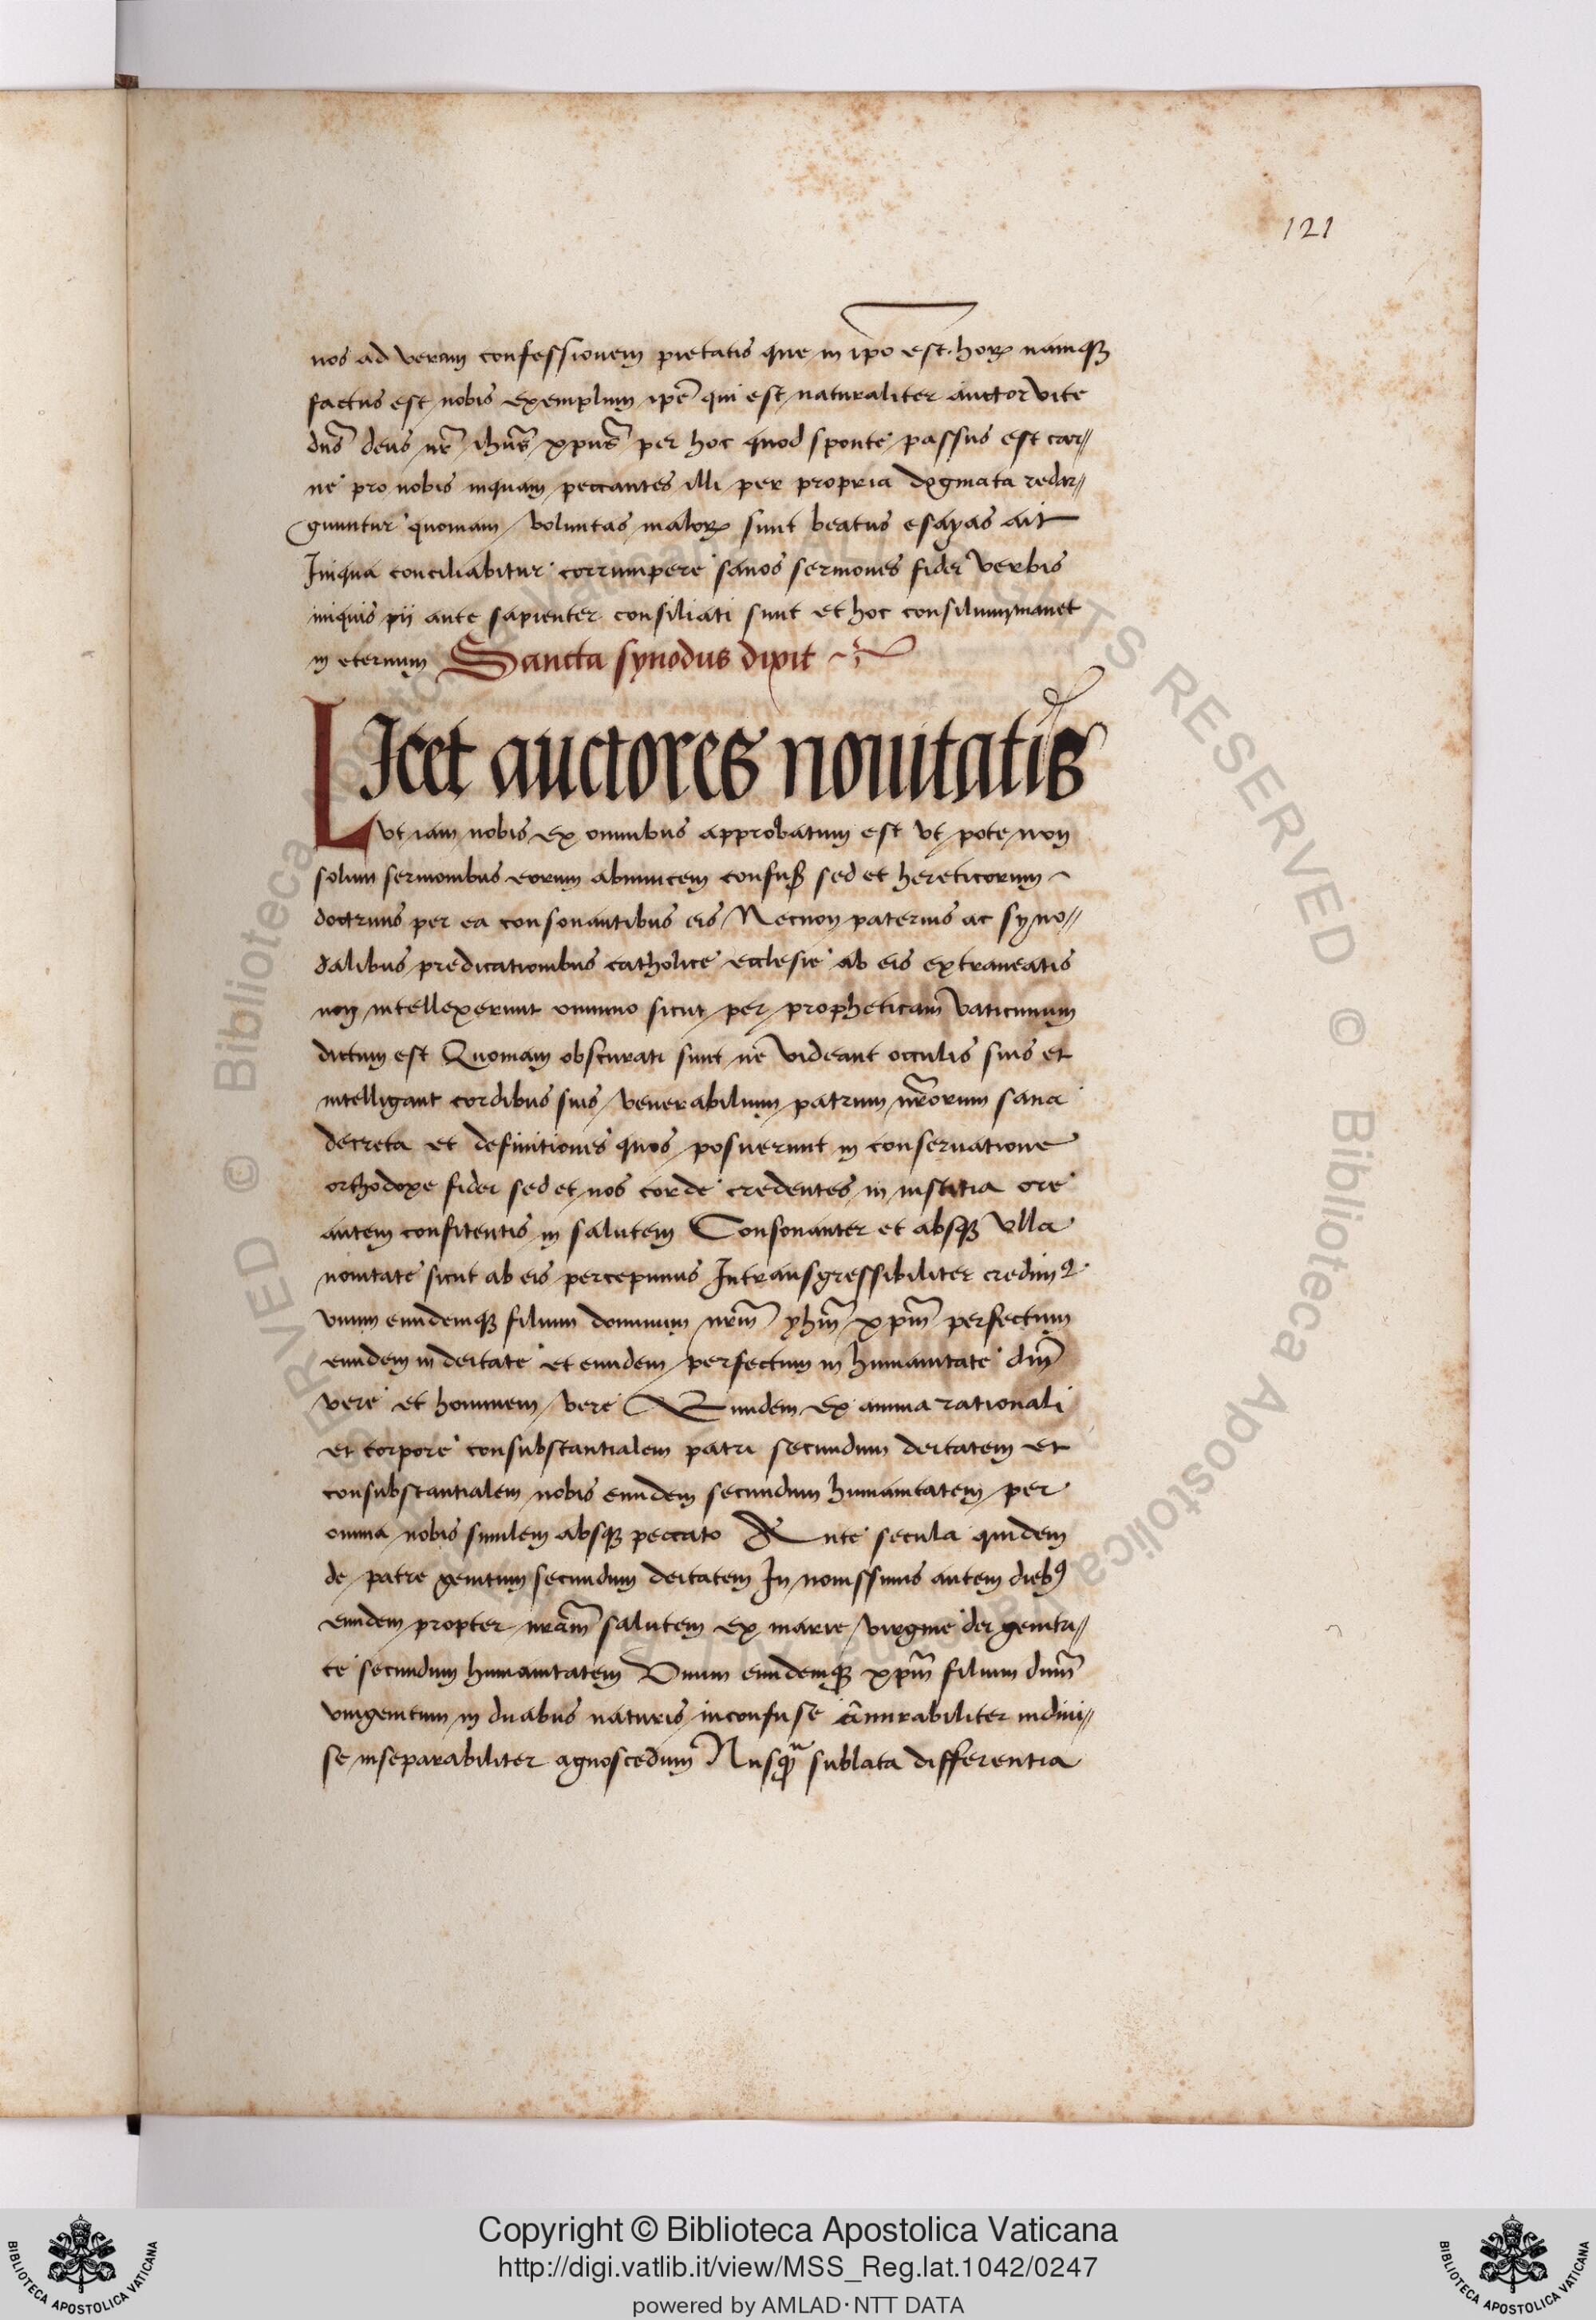 121
nos ad veram confessionem pietatis que in ip̄o est. hoꝝ namqꝫ
factus est nobis exemplum ip̄e qui est naturaliter auctor vite
dn̄s deus nr̄ ihūs xpūs per hoc quod sponte passus est car//
ne pro nobis inquam peccantes illi per propria dogmata redar//
guuntur quoniam voluntas maloꝝ sunt beatus esayas ait
Iniqua conciliabitur corrumpere sanos sermones fidei verbis
iniquis pij ante sapienter consiliati sunt et hoc consilium manet
in eternum Sancta synodus dixit
LIcet auctores nouitatis
vt iam nobis ex omnibus approbatum est vt pote non
solum sermonibus eorum abinuicem sed et hereticorum
doctrinis per ea consonantibus eis Necnon paternis ac syno//
dalibus predicationibus catholice ecclesie ab eis extraneatis
non intellexerunt omnino sicut per propheticam vaticinium
dictum est Quoniam obscurati sunt ne videant occulis suis et
intelligant cordibus suis venerabilium patrum nr̄orum sana
decreta et definitiones quos posuerunt in conseruatione
orthodoxe fidei sed et nos corde credentes in iustitia ore
autem confitentis in salutem Consonanter et absqꝫ vlla
nouitate sicut ab eis percepimus Intransgressibiliter credimꝰ
vnum eundemqꝫ filium dominum nr̄m yhm̄ xpm̄ perfectum
eundem in deitate et eundem perfectum in humanitate dm̄
vere et hominem vere Eundem ex anima rationali
et corpore consubstantialem patri secundum deitatem et
consubstantialem nobis eundem secundum humanitatem per
omnia nobis similem absqꝫ peccato Ante secula quidem
de patre genitum secundum deitatem In nouissimis autem diebꝰ
eundem propter nr̄am salutem ex marie virgine dei genitri//
ce secundum humanitatem Vnum eundemqꝫ xpm̄ filium dnm̄
vnigenitum in duabus naturis inconfuse indiui//
se inseparabiliter agnoscedum Nusqͣ sublata differentia
Copyright © Biblioteca Apostolica Vaticana
http://digi.vatlib.it/view/MSS_Reg.lat.1042/0247
powered by AMLAD·NTT DATA
BIBLIOTECA APOSTOLICA VATICANA
BIBLIOTECA APOSTOLICA VATICANA